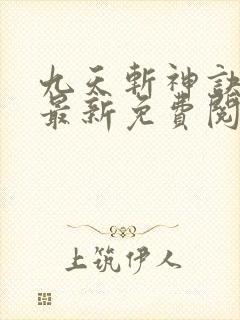 九天斬神訣
最新免費閱
上筑伊人